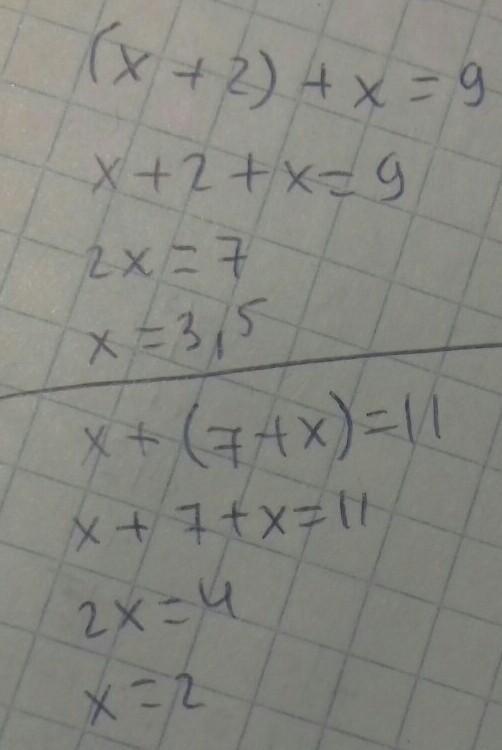 (x + 2) + x = 9
x + 2 + x = 9
2x = 7
x = 3,5
x + (7 + x) = 11
x + 7 + x = 11
2x = 4
x = 2